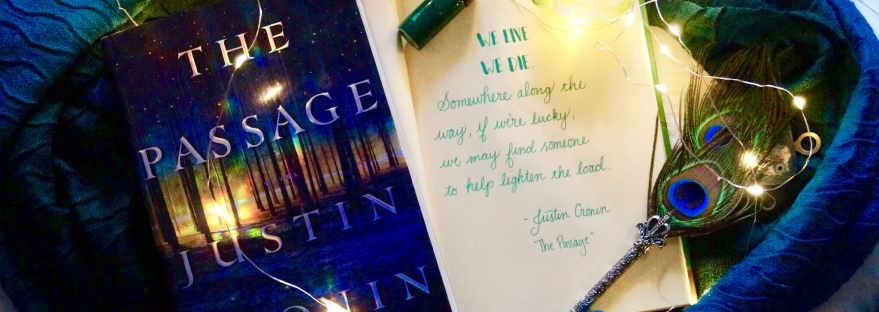 THE
PASSAGE
JUSTIN
WE LIVE
WE DIE.
Somewhere along the
way, if we're lucky,
we may find someone
to help lighten the load.
- Justin Cronin
"The Passage"